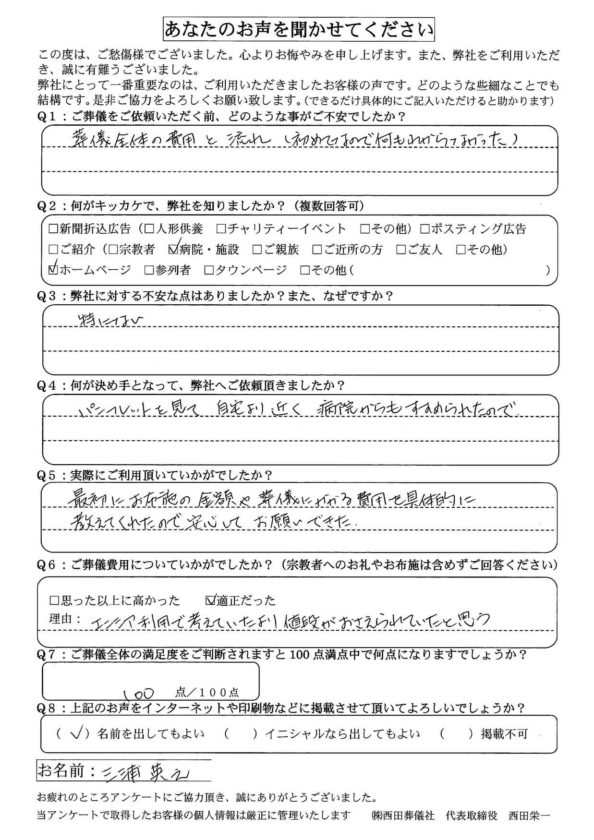 あなたのお声を聞かせてください
この度は、ご愁傷様でございました。心よりお悔やみを申し上げます。また、弊社をご利用いただ
き、誠に有難うございました。
弊社にとって一番重要なのは、ご利用いただきましたお客様の声です。どのような些細なことでも
結構です。是非ご協力をよろしくお願い致します。（できるだけ具体的にご記入いただけると助かります）
Q1：ご葬儀をご依頼いただく前、どのような事がご不安でしたか？
葬儀全体の費用と流れ（初めてなので何もわからなかった）
Q2：何がキッカケで、弊社を知りましたか？（複数回答可）
□新聞折込広告（□人形供養 □チャリティーイベント □その他）□ポスティング広告
□ご紹介（□宗教者 ☑病院・施設 □ご親族 □ご近所の方 □ご友人 □その他）
☑ホームページ □参列者 □タウンページ □その他（ ）
Q3：弊社に対する不安な点はありましたか？また、なぜですか？
特にない
Q4：何が決め手となって、弊社へご依頼頂きましたか？
パンフレットを見て 自宅より近く 病院からもすすめられたので
Q5：実際にご利用頂いていかがでしたか？
最初にお布施の金額や葬儀にかかる費用を具体的に
教えてくれたので安心して お願いできた.
Q6：ご葬儀費用についていかがでしたか？（宗教者へのお礼やお布施は含めずご回答ください）
□思った以上に高かった ☑適正だった
理由： 利用で考えていたより値段がおさえられていたと思う
Q7：ご葬儀全体の満足度をご判断されますと100点満点中で何点になりますでしょうか？
100 点/100点
Q8：上記のお声をインターネットや印刷物などに掲載させて頂いてよろしいでしょうか？
（✓）名前を出してもよい （ ）イニシャルなら出してもよい （ ）掲載不可
お名前：三浦英之
お疲れのところアンケートにご協力頂き、誠にありがとうございました。
当アンケートで取得したお客様の個人情報は厳正に管理いたします ㈱西田葬儀社 代表取締役 西田栄一